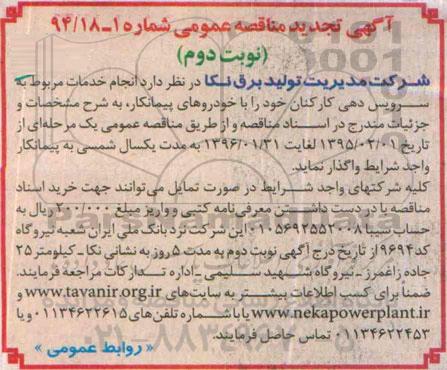 آگهی تجدید مناقصه عمومی شماره ۱ـ۹۴/۱۸
(نوبت دوم)
شرکت مدیریت تولید برق نکا در نظر دارد انجام خدمات مربوط به
سرویس دهی کارکنان خود را با خودروهای پیمانکار، به شرح مشخصات و
جزئیات مندرج در اسناد مناقصه و از طریق مناقصه عمومی یک مرحله‌ای از
تاریخ ۱۳۹۵/۰۲/۰۱ لغایت ۱۳۹۶/۰۱/۳۱ به مدت یکسال شمسی به پیمانکار
واجد شرایط واگذار نماید.
کلیه شرکتهای واجد شرایط در صورت تمایل می‌توانند جهت خرید اسناد
مناقصه با در دست داشتن معرفی‌نامه کتبی و واریز مبلغ ۲۰۰/۰۰۰ ریال به
حساب سیبا ۰۱۰۵۶۹۲۵۵۲۰۰۸ این شرکت نزد بانک ملی ایران شعبه نیروگاه
کد ۹۶۹۴ از تاریخ درج آگهی نوبت دوم به مدت ۵ روز به نشانی نکا ـ کیلومتر ۲۵
جاده زاغمرز ـ نیروگاه شهید سلیمی ـ اداره تدارکات مراجعه فرمایند.
ضمناً برای کسب اطلاعات بیشتر به سایت‌های www.tavanir.org.ir و
www.nekapowerplant.ir و یا با شماره تلفن‌های ۰۱۱۳۴۶۲۲۶۱۵ و یا
۰۱۱۳۴۶۲۲۴۵۳ تماس حاصل فرمایند.
« روابط عمومی »